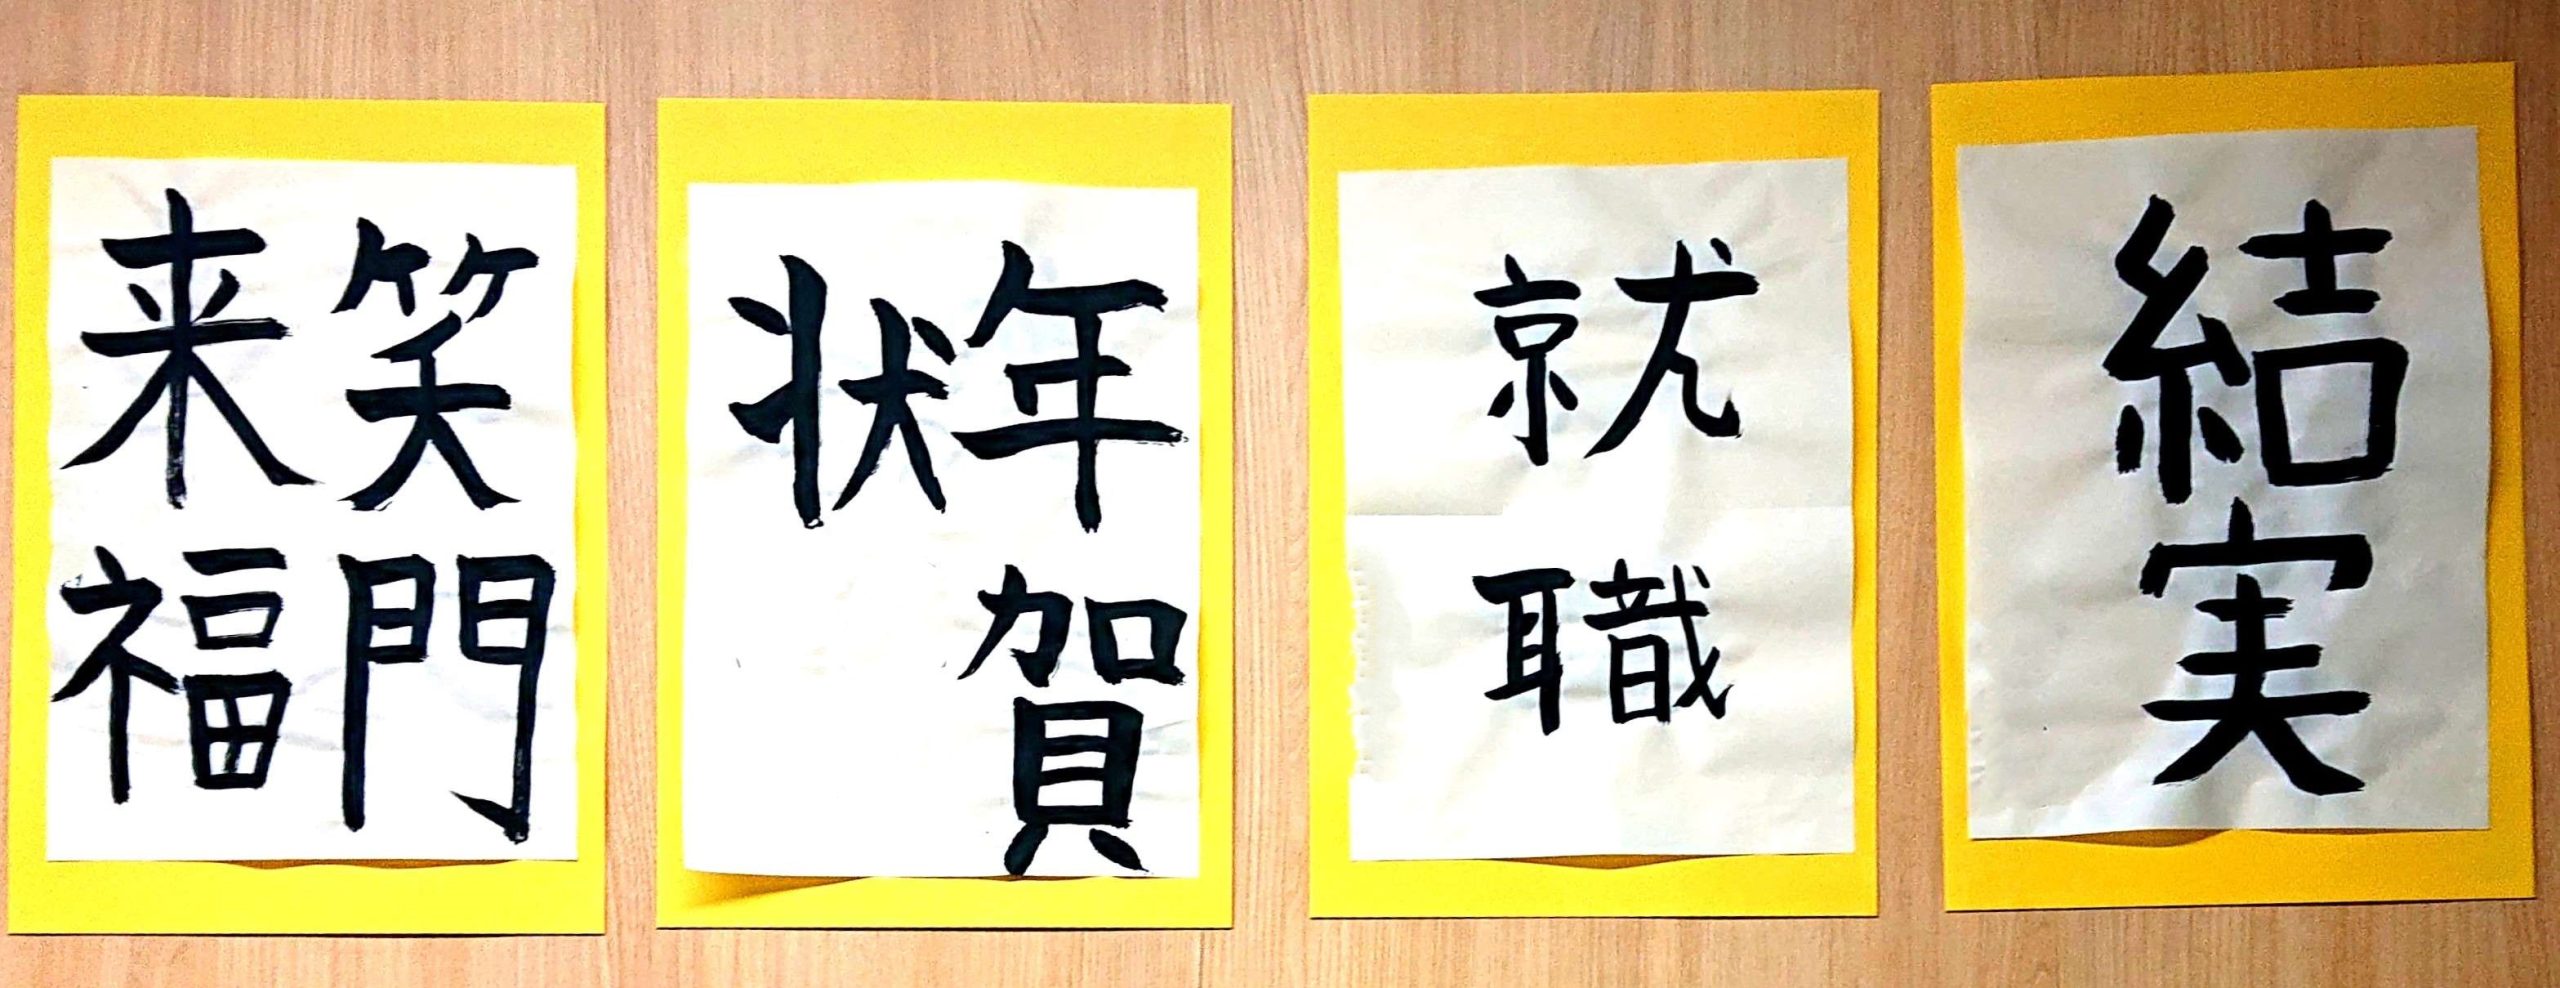 笑門
来福
年賀
状
就職
結実